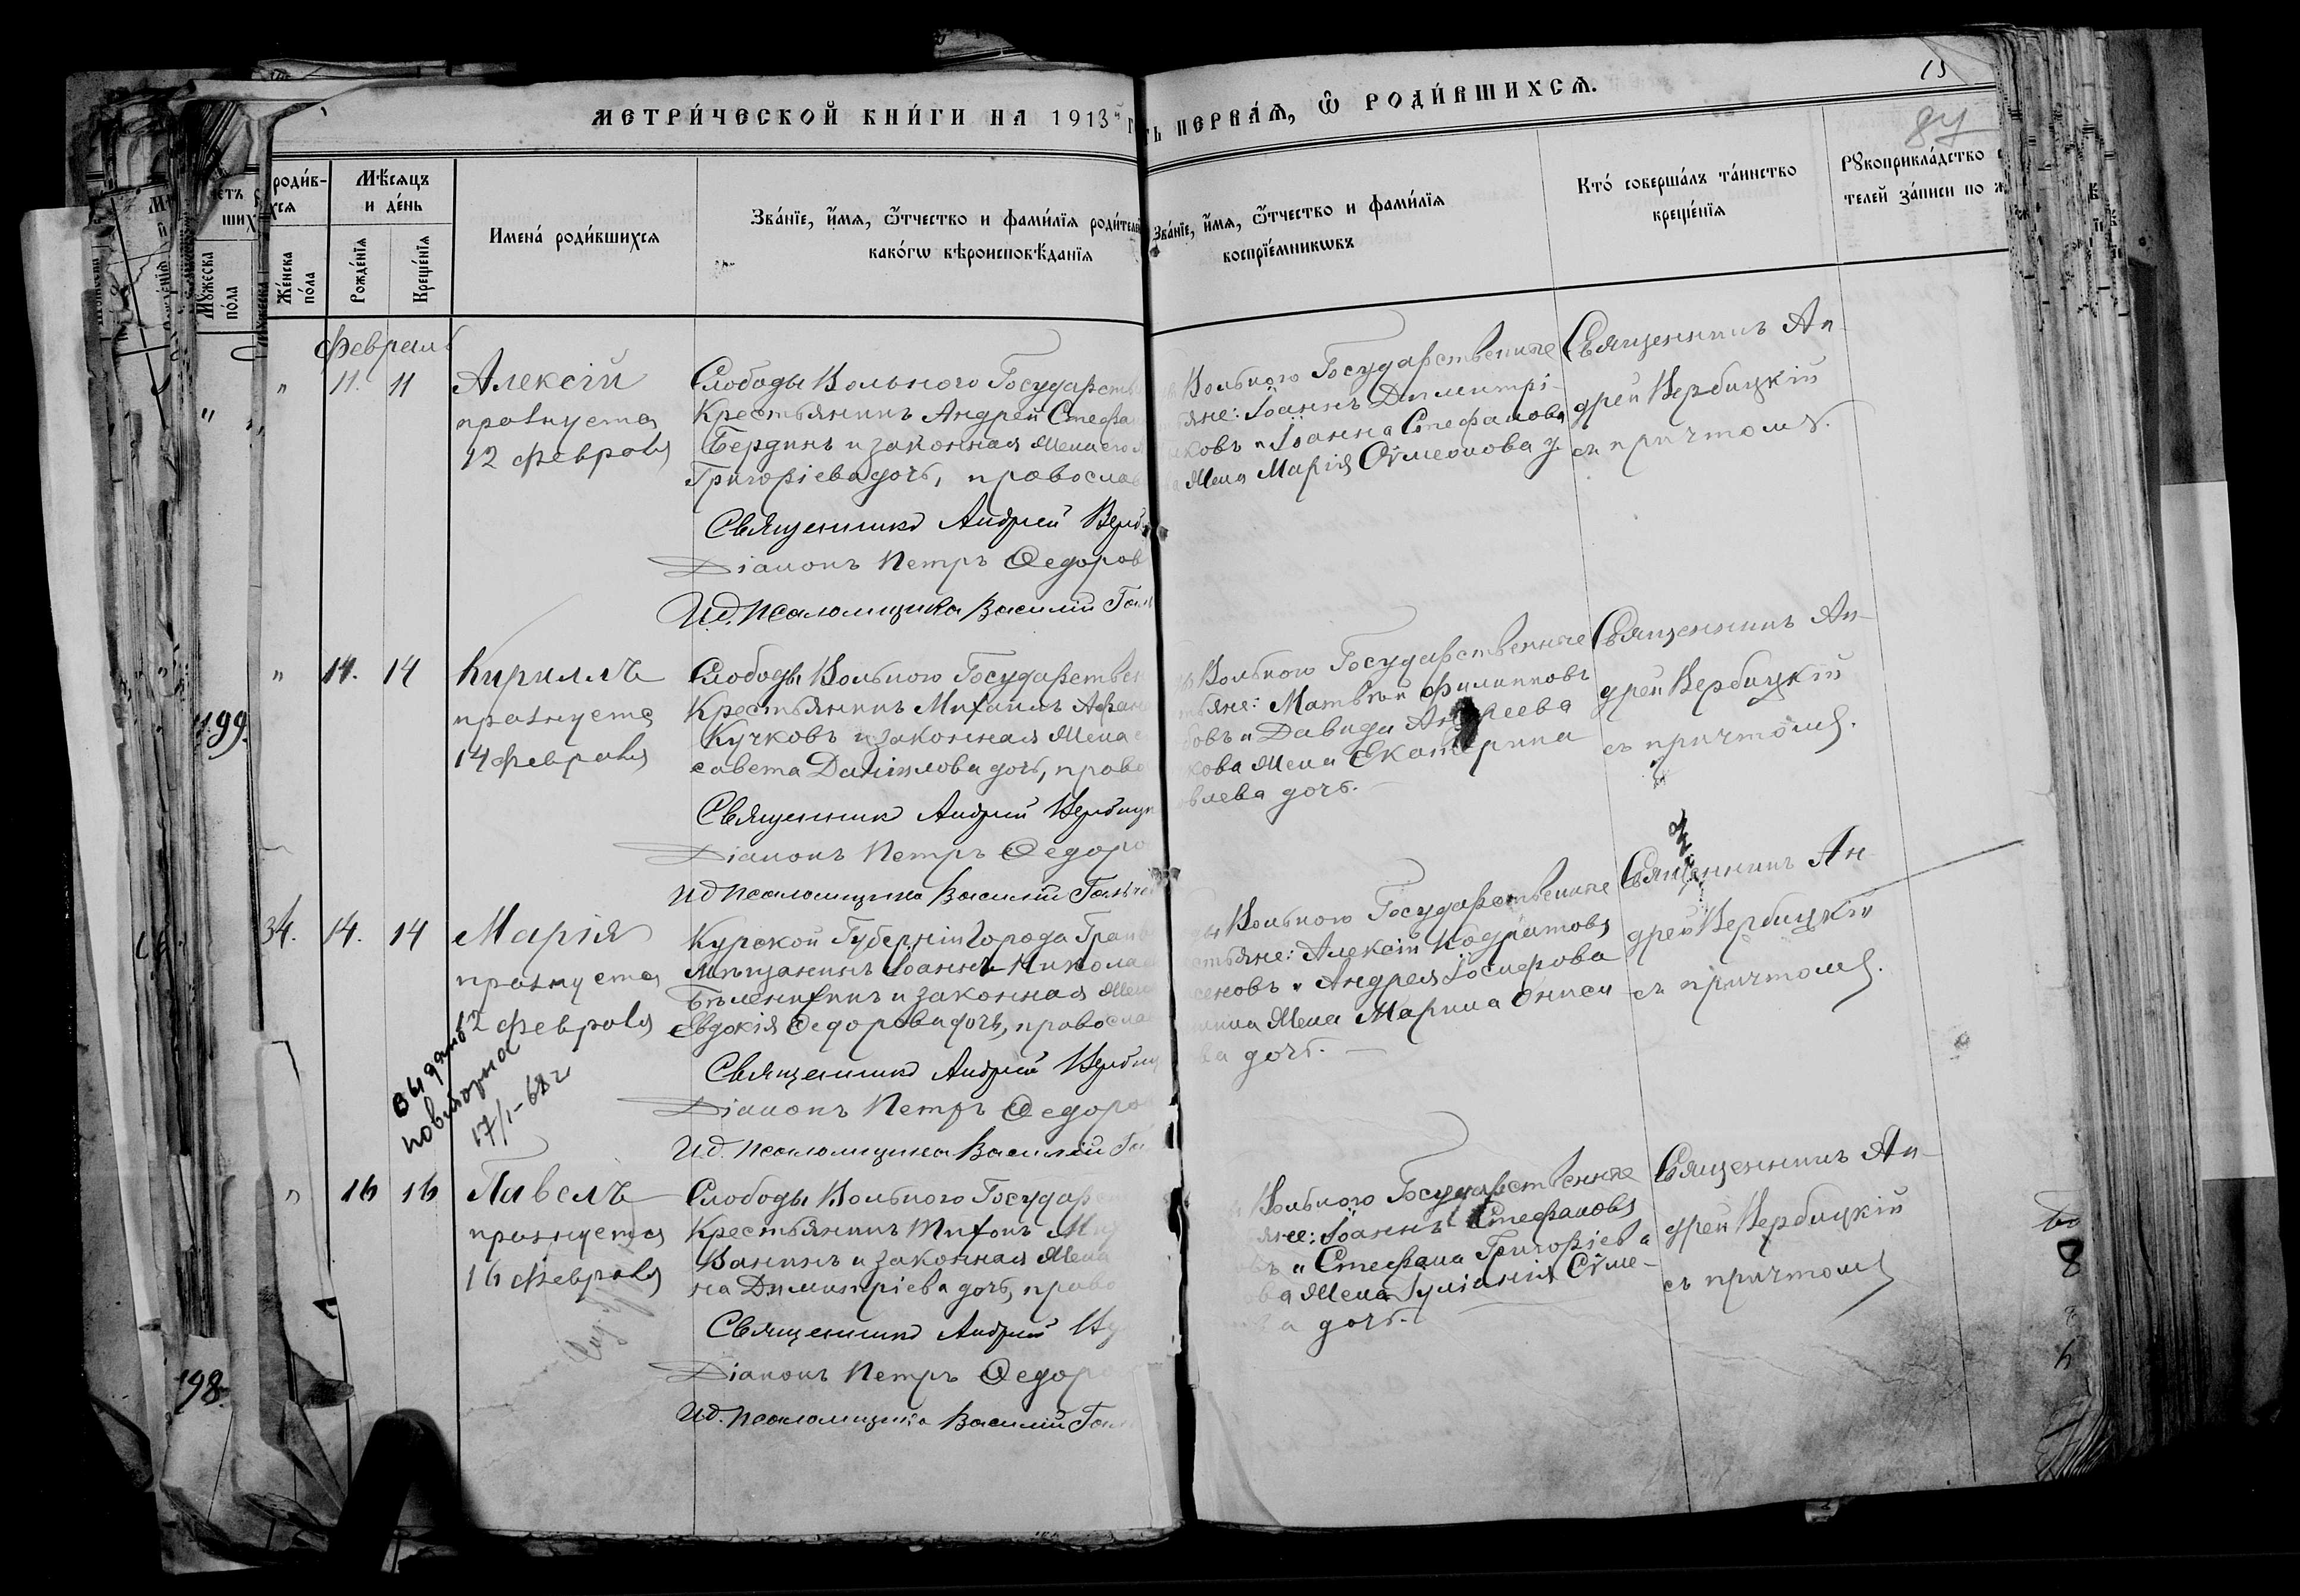 МЕТРИ́ЧЕСКОЙ КНИ́ГИ НА 1913
ПЕРВАѦ, Ѽ РОДИ́ВШИХСѦ.
15
МꙊжеска по́ла
Же́нска по́ла
Мѣ́сѧцъ и де́нь
Рожде́нїѧ
Креще́нїѧ
Имена́ роди́вшихсѧ
Зва́нїе, и́мѧ, ѻ҆́тчество и фами́лїѧ роди́телей
како́гѡ вѣроисповѣ́данїѧ
Зва́нїе, и́мѧ, ѻ҆́тчество и фами́лїѧ
воспрїе́мникѡвъ
Кто́ соверша́лъ та́инство
креще́нїѧ
РꙊкоприкла́дство
телей за́писи по
Февраль
" 11. 11
Алексій
празнуется
12 февраля
Слободы Вольного Государств
Крестьянинъ Андрей Стефа
Бердинъ и законная жена его
Григоріева дочь, православ
Священникъ Андрей Верб
Діаконъ Петръ Ѳедоров
И.д. псаломщика Василій Гал
Вольного Государственные
яне: Іоаннъ Димитрі
ковъ и Іоанна Стефанова
жена Марія Сѵмеонова
Священникъ Ан-
дрей Вербицкій
съ причтомъ.
199.
" 14. 14
Кириллъ
празнуется
14 февраля
Слободы Вольного Государствен
Крестьянинъ Михаилъ Афана
Кучковъ и законная жена е
савета Даніилова дочь, право
Священникъ Андрей Вербицк
Діаконъ Петръ Ѳедоро
И.д. псаломщика Василій Гальче
Вольного Государственные
яне: Матвѣй Филипповъ
овъ и Давида Андреева
кова жена Екатерина
влева дочь.
Священникъ Ан-
дрей Вербицкій
съ причтомъ.
34. 14. 14
Марія
празнуется
12 февраля
выдано
повторное
17/I-68 г
Курской Губерніи Города Грайв
мѣщанинъ Іоаннъ Никола
Бѣленихинъ и законная жена
Евдокія Ѳедорова дочь, правосла
Священникъ Андрей Вербиц
Діаконъ Петръ Ѳедоро
И.д. псаломщика Василій Га
Вольного Государственные
стьяне: Алексій Кодратовъ
сеновъ и Андрея
жена Марина Ониси
ва дочь.
Священникъ Ан-
дрей Вербицкій
съ причтомъ.
" 16 16
Павелъ
празнуется
16 февраля
Слободы Вольного Государ
Крестьянинъ Тихонъ
Ванинъ и законная жена
на Димитріева дочь, право
Священникъ Андрей
Діаконъ Петръ Ѳедоро
И.д. псаломщика Василій Гал
Вольного Государственные
яне: Іоаннъ Стефановъ
въ и Стефана Григоріева
ова жена Іуліанія Сѵме-
а дочь.
Священникъ Ан-
дрей Вербицкій
съ причтомъ
198.